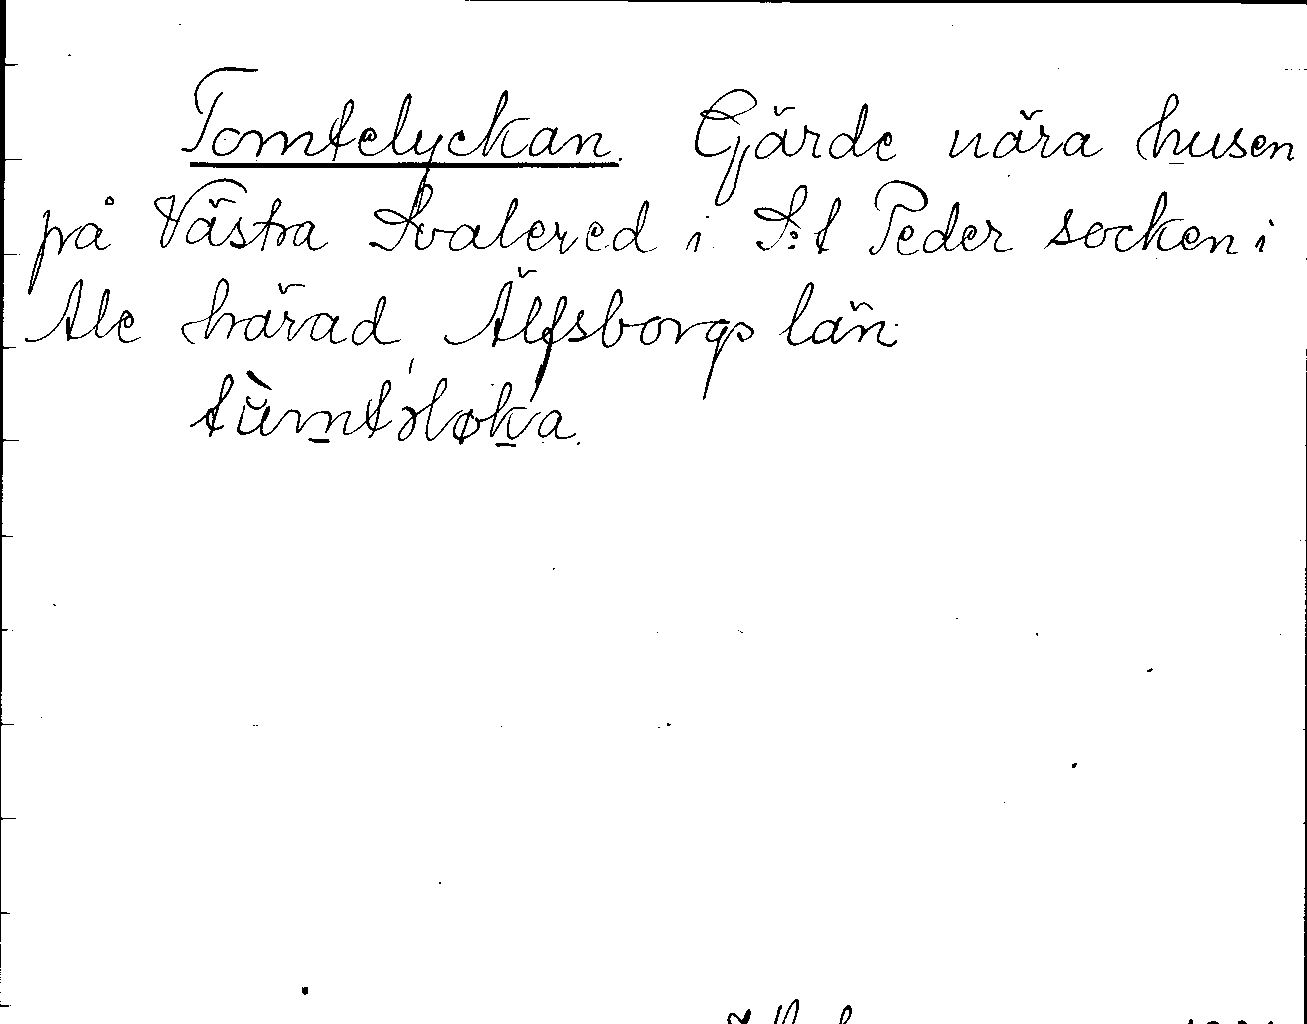 Tomtelyckan. Gärde nära husen
på Västra Svalered i S:t Peder socken i
Ale härad, Älfsborgs län.
tùmtəløka.